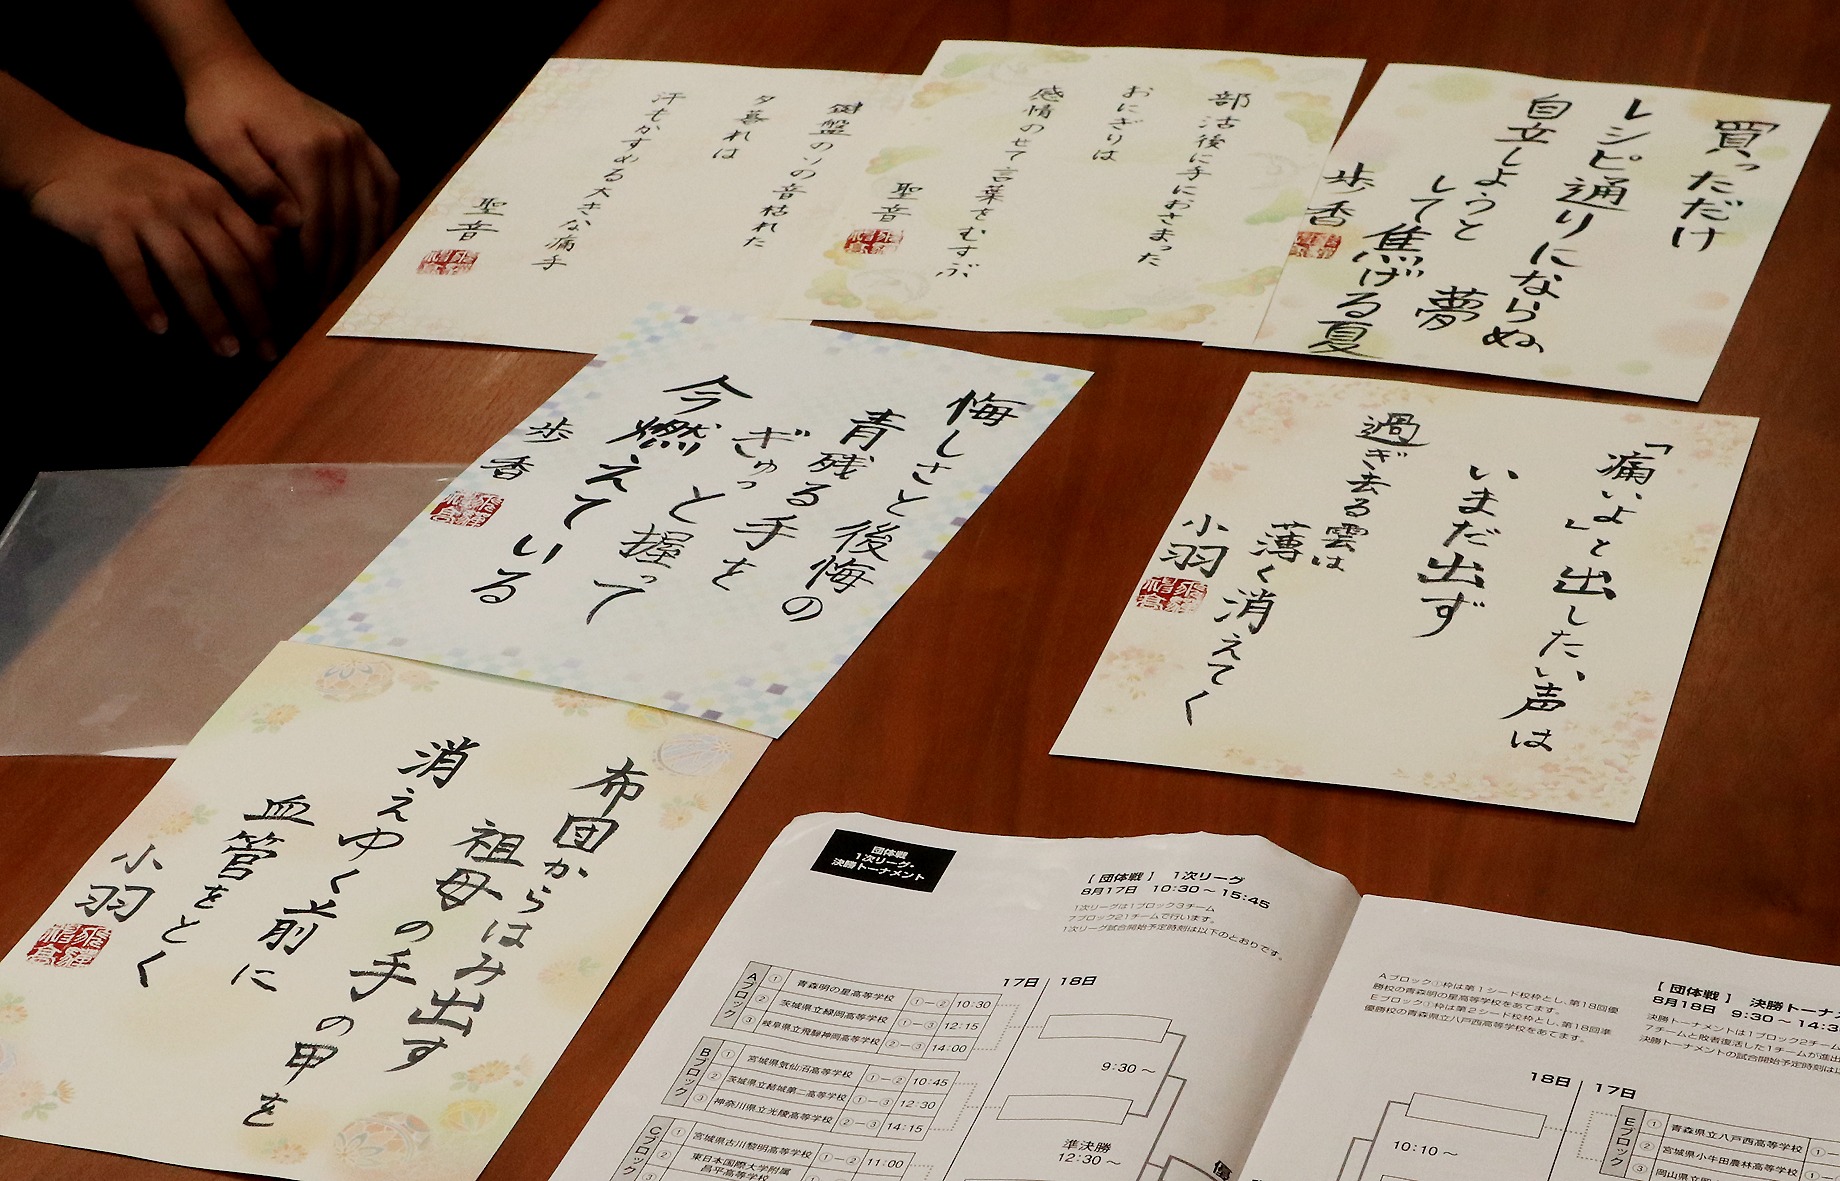 鍵盤のソの音枯れた
夕暮れは
汗もかすめる大きな痛手
聖音
部活後に手におさまった
おにぎりは
感情のせて言葉をむすぶ
聖音
買っただけ
レシピ通りにならぬ
自立しようと
して焦げる夏
夢
歩香
悔しさと後悔の
青残る手を
ぎゅっと握って
今燃えている
歩香
「痛いよ」と出したい声は
いまだ出ず
過ぎ去る雲は
薄く消えてく
小羽
布団からはみ出す
祖母の手の甲を
消えゆく前に
血管をとく
小羽
団体戦
1次リーグ・
決勝トーナメント
[ 団体戦 ] 1次リーグ
8月17日 10:30～15:45
1次リーグは1ブロック3チーム
7ブロック21チームで行います。
1次リーグ試合開始予定時刻は以下のとおりです。
17日 18日
Aブロック
① 青森明の星高等学校 ①-② 10:30
② 茨城県立緑岡高等学校 ①-③ 12:15
③ 岐阜県立飛騨神岡高等学校 ②-③ 14:00
Bブロック
① 宮城県気仙沼高等学校 ①-② 10:45
② 茨城県立結城第二高等学校 ①-③ 12:30
③ 神奈川県立光陵高等学校 ②-③ 14:15
Cブロック
① 宮城県古川黎明高等学校 ①-② 11:00
② 東日本国際大学附属
昌平高等学校
9:30～
準決勝
12:30～
Aブロック①枠は第1シード校枠とし、第18回優
勝校の青森明の星高等学校をあてます。
Eブロック①枠は第2シード校枠とし、第18回準
優勝校の青森県立八戸西高等学校をあてます。
[ 団体戦 ] 決勝トーナメ
8月18日 9:30～14:3
決勝トーナメントは1ブロック2チーム
7チームと敗者復活した1チームが進出
決勝トーナメントの試合開始予定時刻は以
18日 17日
10:10～
Eブロック
① 青森県立八戸西高等学校
② 宮城県小牛田農林高等学校
③